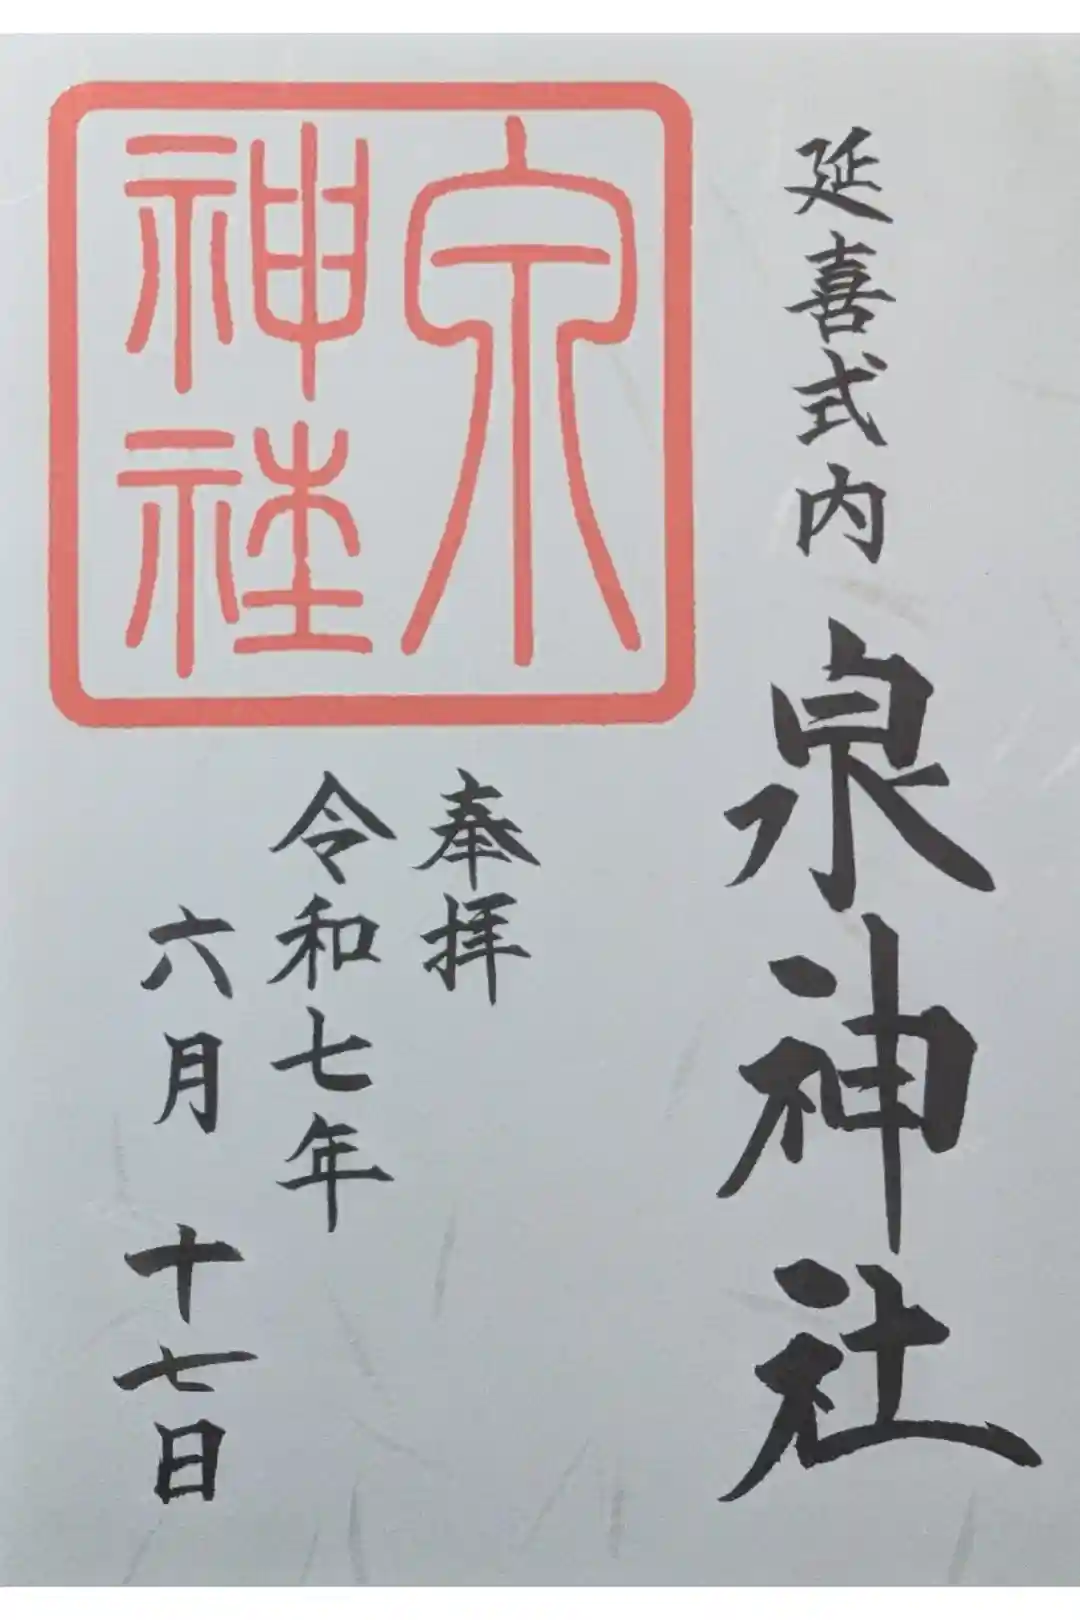 延喜式内 泉神社
奉拝
令和七年
六月十七日
泉
神社